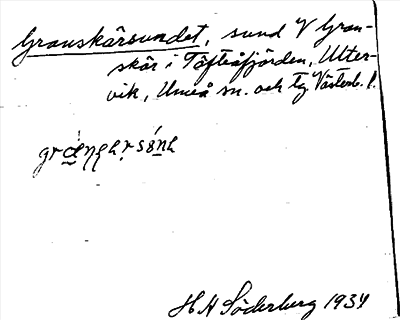 Granskärsundet, sund V Gran-
skär i Täfteåfjörden, Ulter-
vik, Umeå sn. och tg Västerb. l.
H H Söderberg 1934